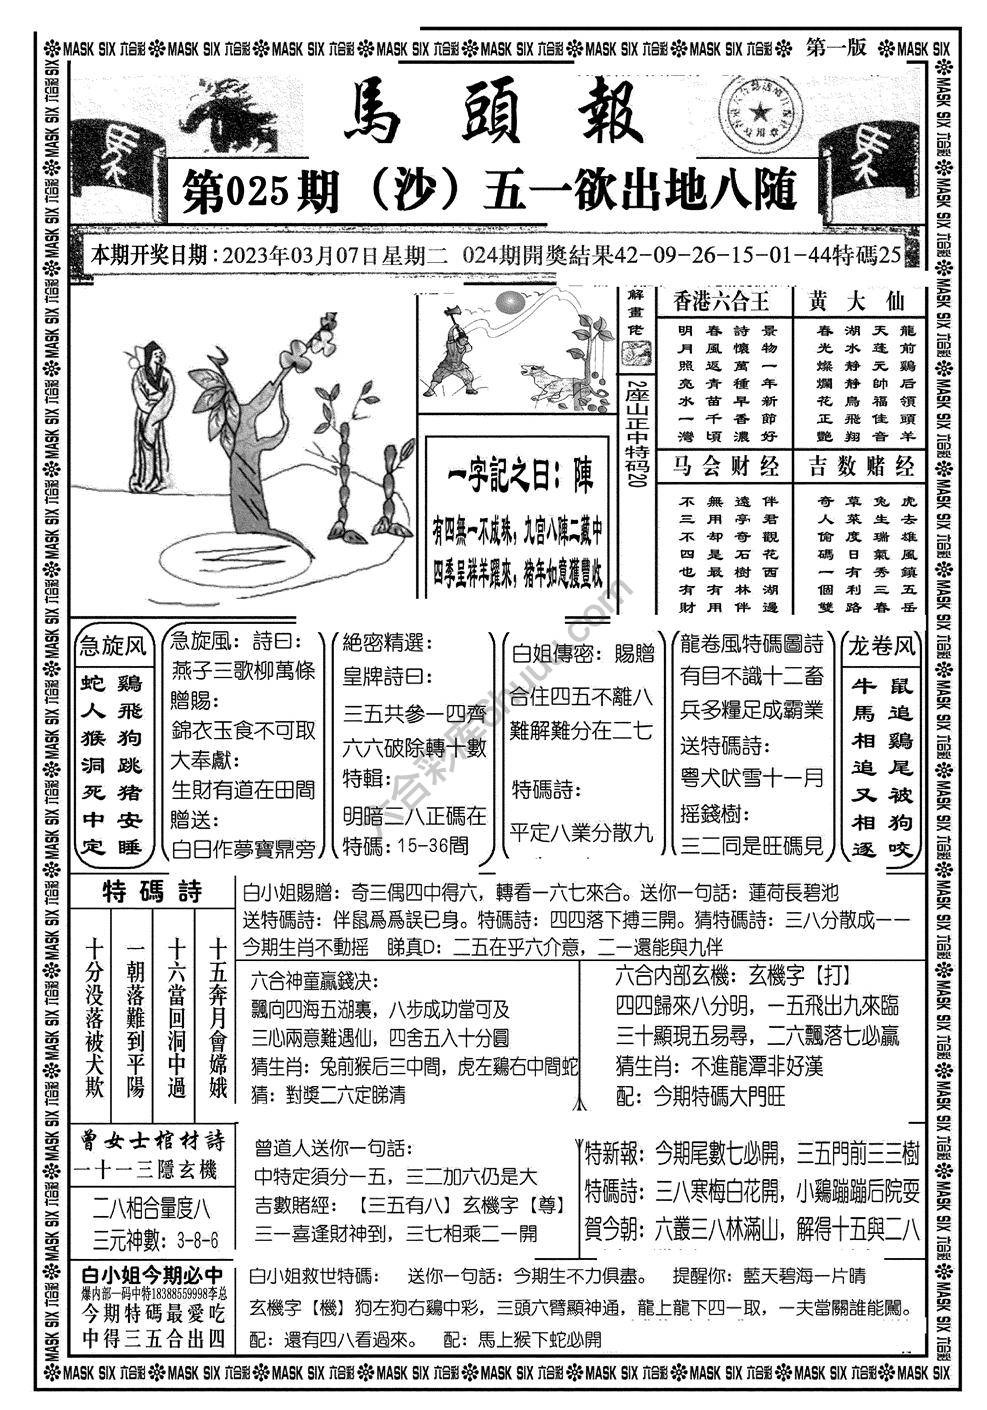 MASK SIX 六合彩 MASK SIX 六合彩 MASK SIX 六合彩 MASK SIX 六合彩 MASK SIX 六合彩 MASK SIX 六合彩 MASK SIX 六合彩 第一版 MASK SIX
馬頭報
第025期（沙）五一欲出地八随
本期开奖日期：2023年03月07日星期二 024期開獎結果42-09-26-15-01-44特碼25
解畫佬
2座山正中特码20
香港六合王
明月照亮水一灣
春風返青苗千頃
詩懷萬種早香濃
景物一年新節好
黃大仙
春光燦爛花正艷
湖水靜靜鳥飛翔
天蓬元帥福佳音
龍前鷄后領頭羊
一字記之日：陳
有四無一不成珠，九宫八陣二藏中
四季呈祥羊躍來，猪年如意獲豐收
马会财经
不三不四也有財
無用却是最有用
遠亭奇石樹林伴
伴君觀花西湖邊
吉数赌经
奇人偷碼一個雙
草菜度日有利路
兔生瑞氣秀三春
虎去雄風鎮五岳
急旋风
蛇人猴洞死中定
鷄飛狗跳猪安睡
急旋風：詩曰：
燕子三歌柳萬條
贈賜：
錦衣玉食不可取
大奉獻：
生財有道在田間
贈送：
白日作夢寶鼎旁
絕密精選：
皇牌詩曰：
三五共參一四齊
六六破除轉十數
特輯：
明暗二八正碼在
特碼：15-36間
白姐傳密：賜贈
合住四五不離八
難解難分在二七
特碼詩：
平定八業分散九
龍卷風特碼圖詩
有目不識十二畜
兵多糧足成霸業
送特碼詩：
粤犬吠雪十一月
摇錢樹：
三二同是旺碼見
龙卷风
牛馬相追又相逐
鼠追鷄尾被狗咬
特碼詩
十分没落被犬欺
一朝落難到平陽
十六當回洞中過
十五奔月會嫦娥
白小姐賜贈：奇三偶四中得六，轉看一六七來合。送你一句話：蓮荷長碧池
送特碼詩：伴鼠爲爲誤已身。特碼詩：四四落下搏三開。猜特碼詩：三八分散成一一
今期生肖不動摇 睇真D：二五在乎六介意，二一還能與九伴
六合神童贏錢决：
飄向四海五湖裏，八步成功當可及
三心兩意難遇仙，四舍五入十分圓
猜生肖：兔前猴后三中間，虎左鷄右中間蛇
猜：對獎二六定睇清
六合内部玄機：玄機字【打】
四四歸來八分明，一五飛出九來臨
三十顯現五易尋，二六飄落七必贏
猜生肖：不進龍潭非好漢
配：今期特碼大門旺
曾女士棺材詩
一十一三隱玄機
二八相合量度八
三元神數：3-8-6
曾道人送你一句話：
中特定須分一五，三二加六仍是大
吉數賭經：【三五有八】玄機字【尊】
三一喜逢財神到，三七相乘二一開
特新報：今期尾數七必開，三五門前三三樹
特碼詩：三八寒梅白花開，小鷄蹦蹦后院耍
賀今朝：六叢三八林滿山，解得十五與二八
白小姐今期必中
爆内部一码中特18388559998李总
今期特碼最愛吃
中得三五合出四
白小姐救世特碼： 送你一句話：今期生不力俱盡。 提醒你：藍天碧海一片晴
玄機字【機】狗左狗右鷄中彩，三頭六臂顯神通，龍上龍下四一取，一夫當關誰能闖。
配：還有四八看過來。 配：馬上猴下蛇必開
MASK SIX 六合彩 MASK SIX 六合彩 MASK SIX 六合彩 MASK SIX 六合彩 MASK SIX 六合彩 MASK SIX 六合彩 MASK SIX 六合彩 MASK SIX 六合彩 MASK SIX